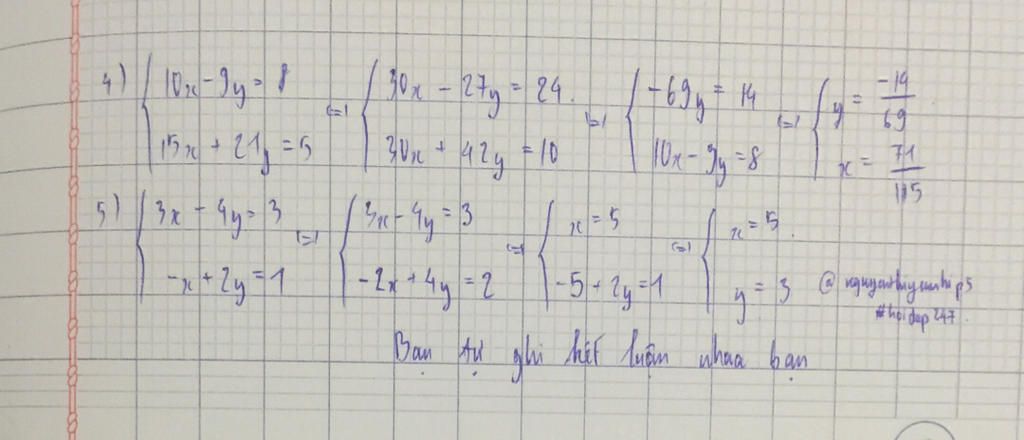 4) { 10x - 9y = 8 ; 15x + 21y = 5 (=) { 30x - 27y = 24. ; 30x + 42y = 10 (=) { -69y = 14 ; 10x - 9y = 8 (=) { y = -14/69 ; x = 71/115
5) { 3x - 4y = 3 ; -x + 2y = 1 (=) { 3x - 4y = 3 ; -2x + 4y = 2 (=) { x = 5 ; -5 + 2y = 1 (=) { x = 5. ; y = 3
#hoidap247.
Bạn tự ghi kết luận nhaa bạn